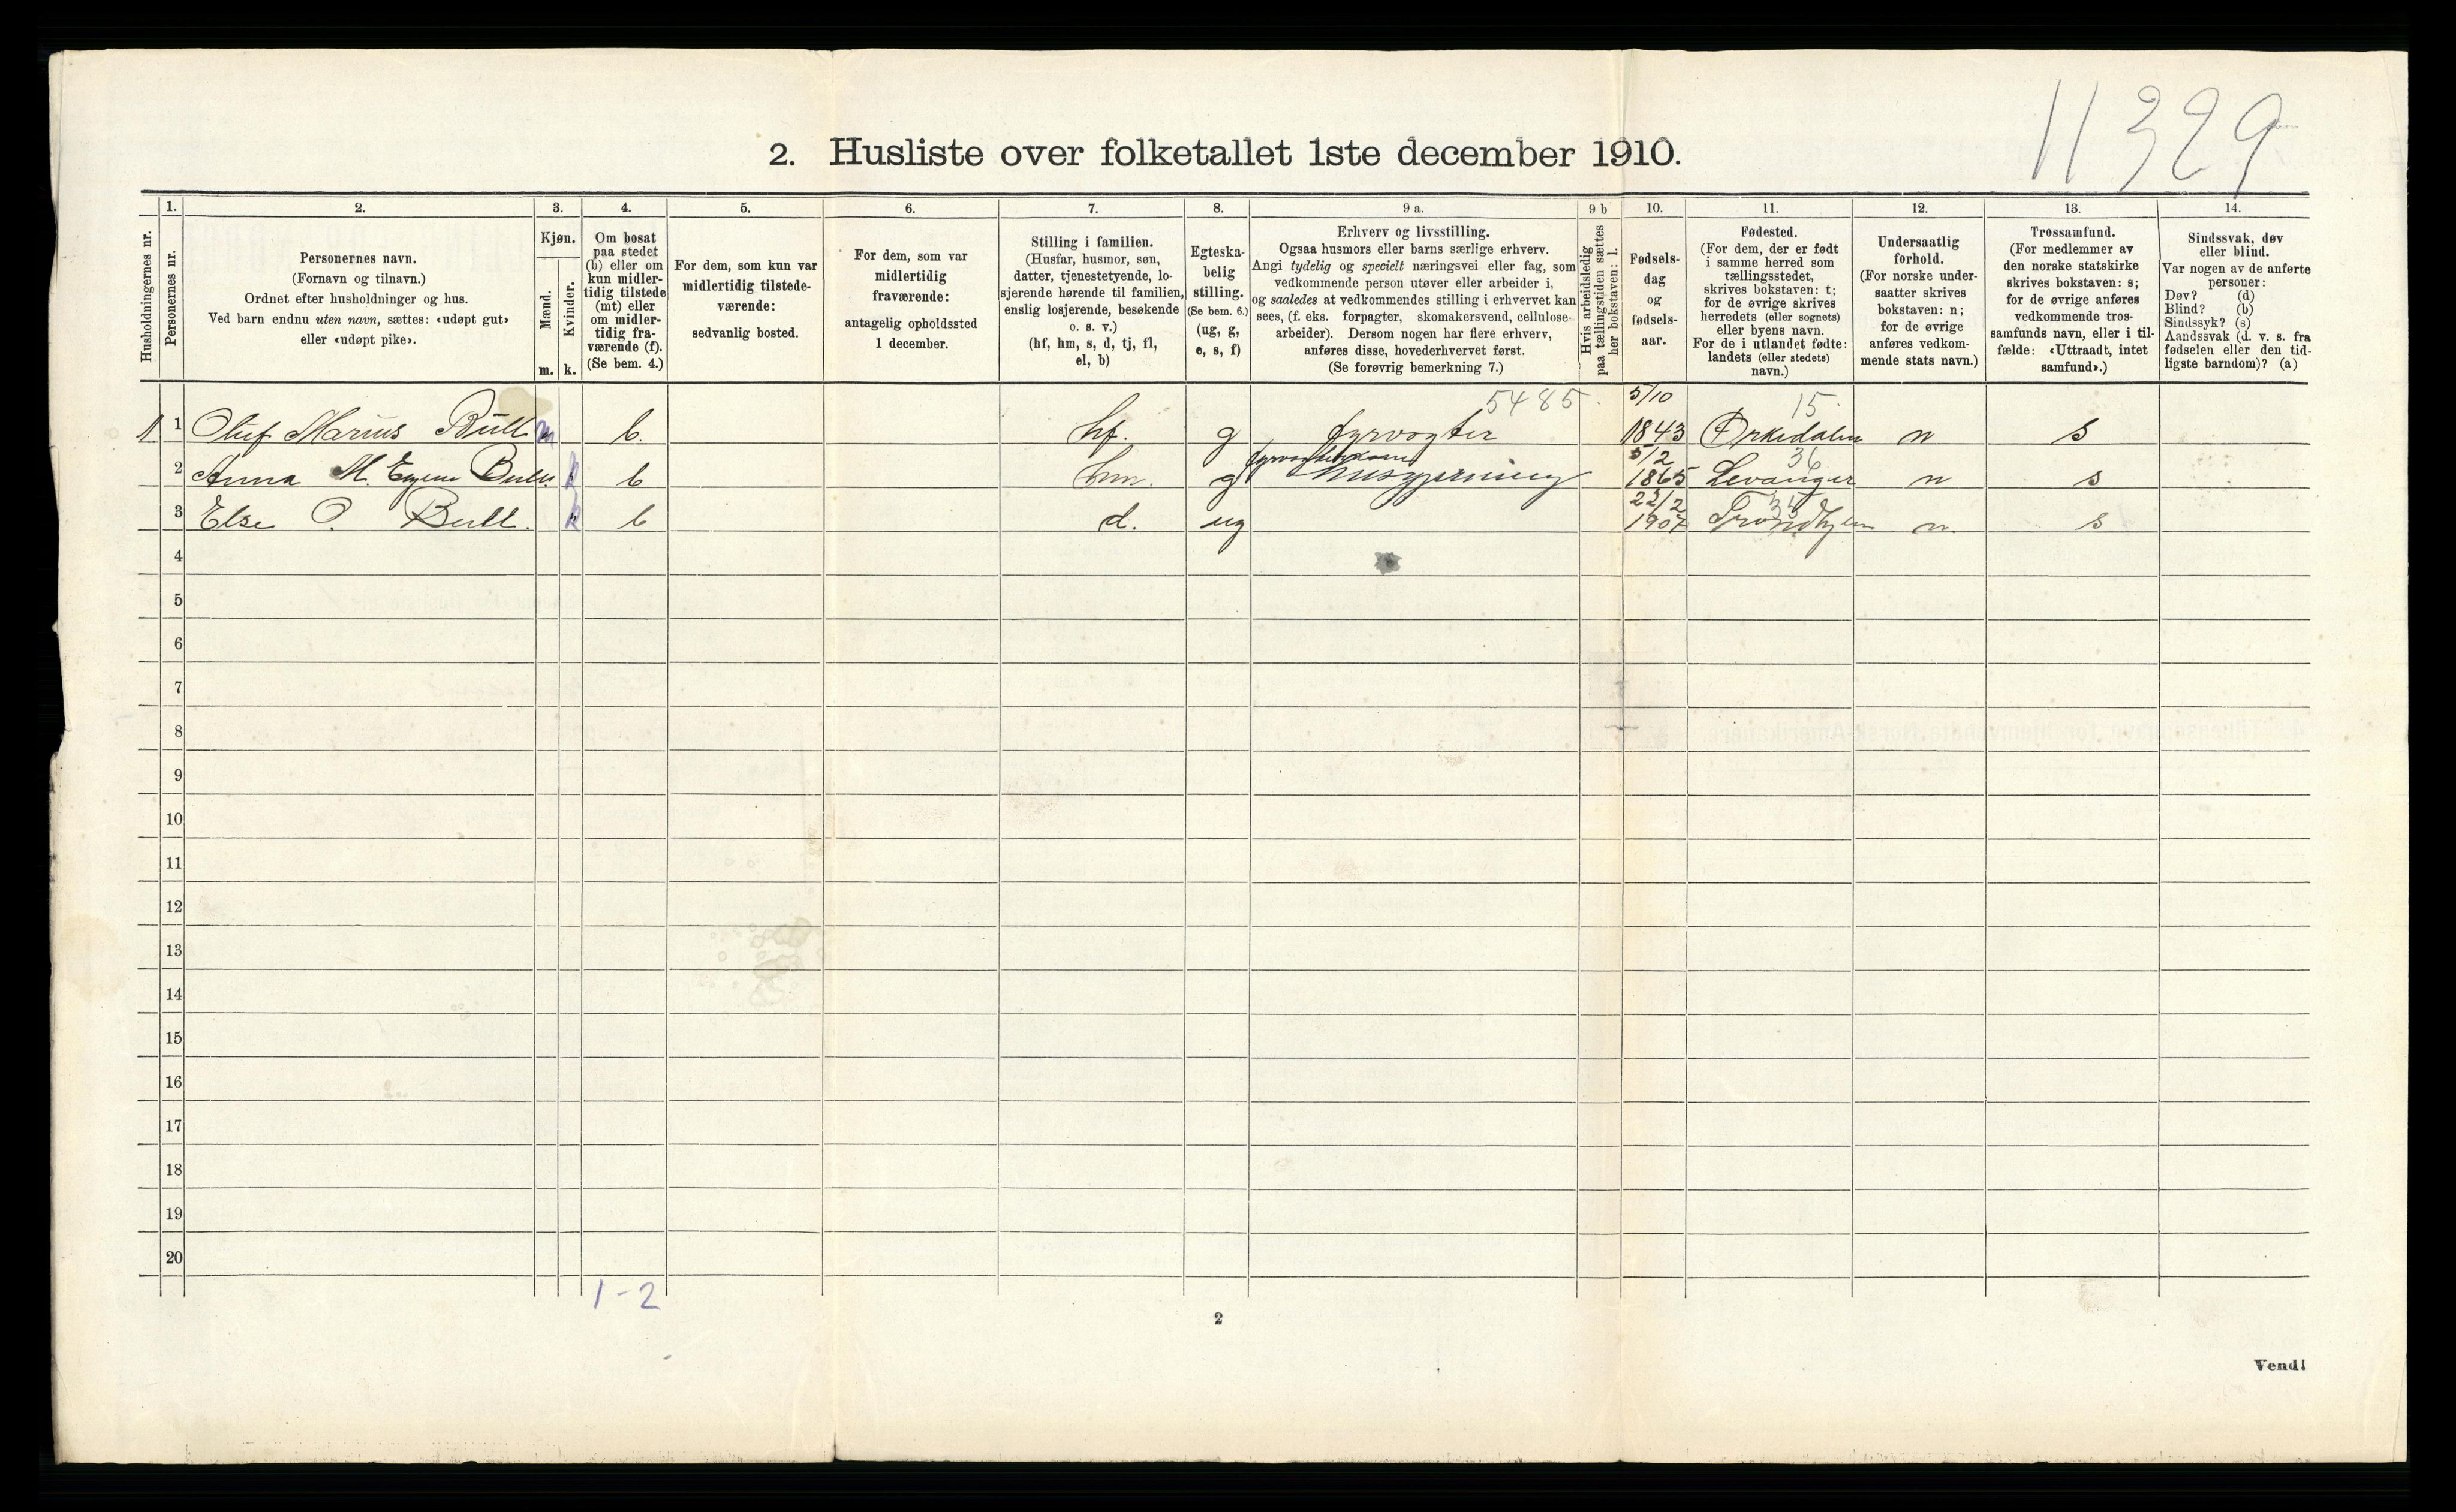 11329
2. Husliste over folketallet 1ste december 1910.
Husholdningernes nr.
1.
Personernes nr.
2.
Personernes navn.
(Fornavn og tilnavn.)
Ordnet efter husholdninger og hus.
Ved barn endnu uten navn, sættes: «udøpt gut»
eller «udøpt pike».
3.
Kjøn.
Mænd.
Kvinder.
m. k.
4.
Om bosat
paa stedet
(b) eller om
kun midler-
tidig tilstede
(mt) eller
om midler-
tidig fra-
værende (f).
(Se bem. 4.)
5.
For dem, som kun var
midlertidig tilstede-
værende:
sedvanlig bosted.
6.
For dem, som var
midlertidig
fraværende:
antagelig opholdssted
1 december.
7.
Stilling i familien.
(Husfar, husmor, søn,
datter, tjenestetyende, lo-
sjerende hørende til familien,
enslig losjerende, besøkende
o. s. v.)
(hf, hm, s, d, tj, fl,
el, b)
8.
Egteska-
belig
stilling.
(Se bem. 6.)
(ug, g,
e, s, f)
9 a.
Erhverv og livsstilling.
Ogsaa husmors eller barns særlige erhverv.
Angi tydelig og specielt næringsvei eller fag, som
vedkommende person utøver eller arbeider i,
og saaledes at vedkommendes stilling i erhvervet kan
sees, (f. eks. forpagter, skomakersvend, cellulose-
arbeider). Dersom nogen har flere erhverv,
anføres disse, hovederhvervet først.
(Se forøvrig bemerkning 7.)
9 b
Hvis arbeidsledig
paa tællingstiden sættes
her bokstaven: l.
10.
Fødsels-
dag
og
fødsels-
aar.
11.
Fødested.
(For dem, der er født
i samme herred som
tællingsstedet,
skrives bokstaven: t;
for de øvrige skrives
herredets (eller sognets)
eller byens navn.
For de i utlandet fødte:
landets (eller stedets)
navn.)
12.
Undersaatlig
forhold.
(For norske under-
saatter skrives
bokstaven: n;
for de øvrige
anføres vedkom-
mende stats navn.)
13.
Trossamfund.
(For medlemmer av
den norske statskirke
skrives bokstaven: s;
for de øvrige anføres
vedkommende tros-
samfunds navn, eller i til-
fælde: «Uttraadt, intet
samfund».)
14.
Sindssvak, døv
eller blind.
Var nogen av de anførte
personer:
Døv? (d)
Blind? (b)
Sindssyk? (s)
Aandssvak (d. v. s. fra
fødselen eller den tid-
ligste barndom)? (a)
5485 5/10 15
1 1 Oluf Marius Bull m b. hf. g fyrvogter 1843 Orkedalen n s
5/2 36
2 Anna M. Bull k b hm. g husgjerning 1865 Levanger n s
22/2 35
3 Else O. Bull. k b d. ug 1907 Trondhjem n. s
4
5
6
7
8
9
10
11
12
13
14
15
16
17
18
19
20
1-2
2
Vend!